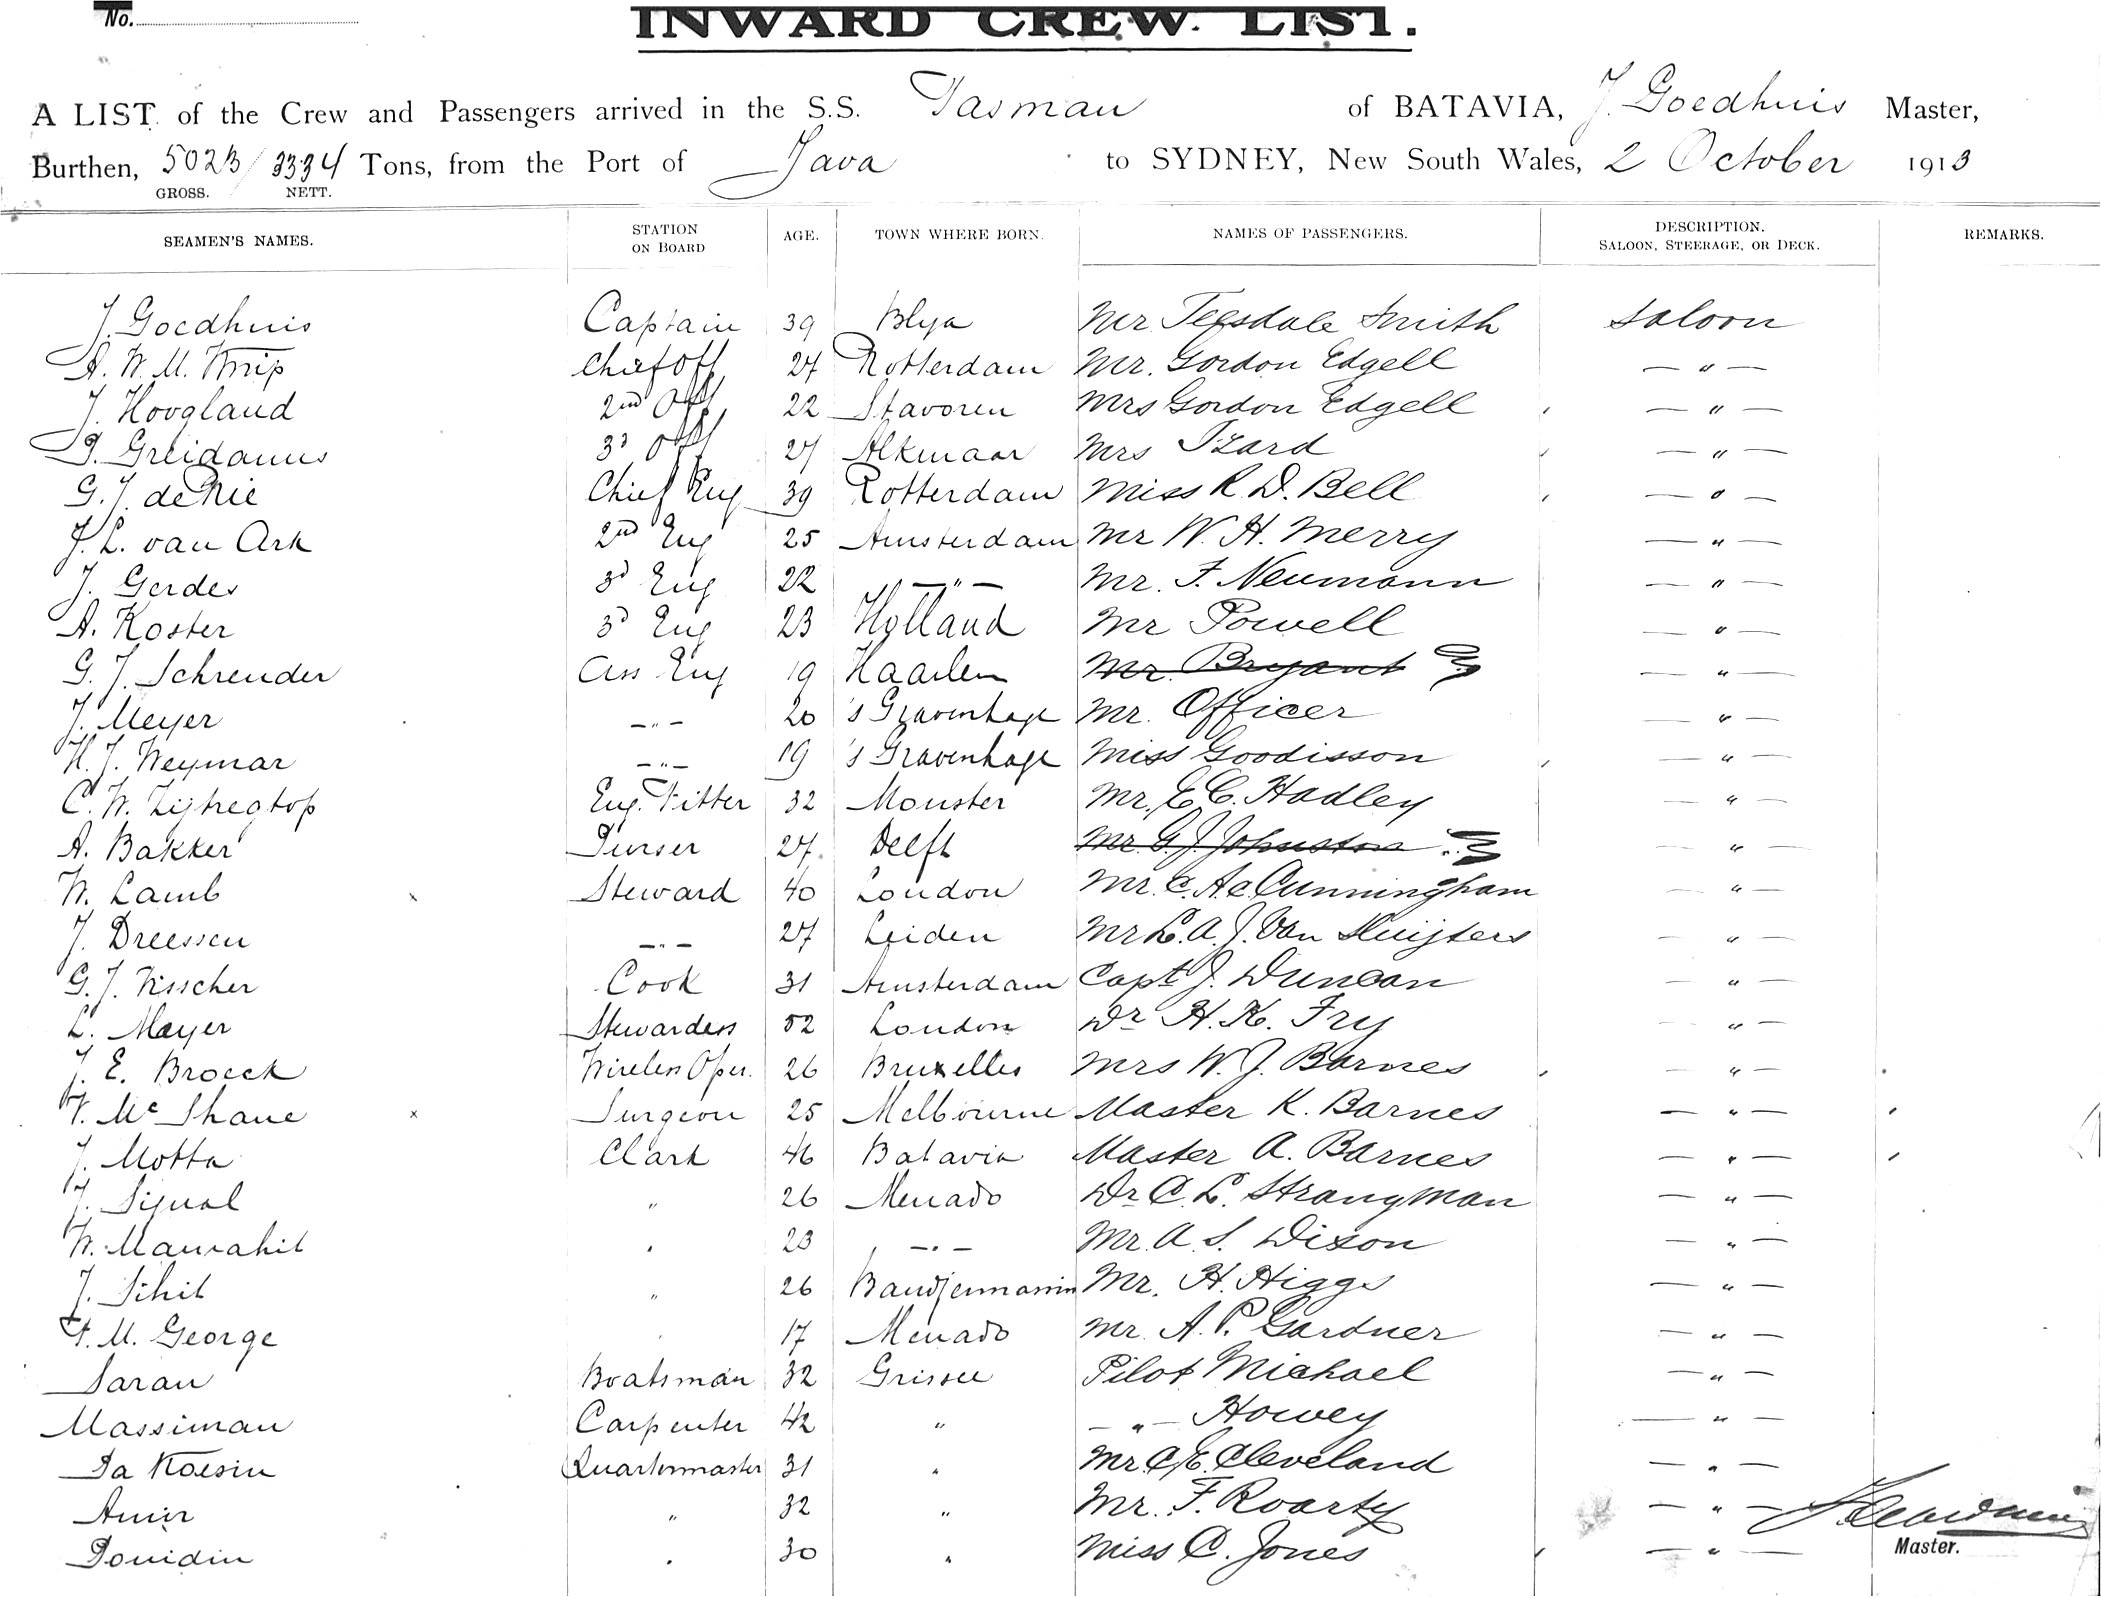 No.
INWARD CREW LIST.
A LIST of the Crew and Passengers arrived in the S.S. Tasman of BATAVIA, J. Goedhuis Master,
Burthen, 5023 / 3334 Tons, from the Port of Java to SYDNEY, New South Wales, 2 October 1913
GROSS. NETT.
SEAMEN'S NAMES. STATION ON BOARD AGE. TOWN WHERE BORN. NAMES OF PASSENGERS. DESCRIPTION. SALOON, STEERAGE, OR DECK. REMARKS.
J. Goedhuis Captain 39 Blya Mr. Teesdale Smith Saloon
A. W. M. Knip Chief Off 27 Rotterdam Mr. Gordon Edgell — " —
J. Hoogland 2nd Off 22 Stavoren Mrs Gordon Edgell — " —
Greidanus 3d Off 27 Alkmaar Mrs Izard — " —
G. J. de Nie Chief Eng 39 Rotterdam Miss R. D. Bell — " —
J. L. van Ark 2nd Eng 25 Amsterdam Mr W. H. Merry — " —
J. Gerdes 3d Eng 22 — " — Mr. F. Neumann — " —
A. Koster 3d Eng 23 Holland Mr Powell — " —
G. J. Schreuder Ass Eng 19 Haarlem Mr. Bryant — " —
J. Meyer — " — 20 's Gravenhage Mr. Officer — " —
H. J. Weymar — " — 19 's Gravenhage Miss Goodisson — " —
C. W. Eng. Fitter 32 Monster Mr. E. C. Hadley — " —
A. Bakker Purser 27. Delft Mr. G. J. Johnston — " —
W. Lamb x Steward 40 London Mr. C. Cunningham — " —
J. Dreessen — " — 27 Leiden Mr L. A. J. Van Sluijters — " —
G. J. Visscher Cook 31 Amsterdam Capt. J. Duncan — " —
L. Mayer Stewardess 52 London Dr H. K. Fry — " —
J. E. Broeck Wireless Oper. 26 Bruxelles Mrs W. J. Barnes — " —
F. Mc Shane x Surgeon 25 Melbourne Master K. Barnes — " —
J. Motta Clark 46 Batavia Master A. Barnes — " —
J. Sigual " 26 Menado Dr C. L. Strangman — " —
W. " 23 — " — Mr. A. S. Dixon — " —
J. Sihit " 26 Bandjermasin Mr. H. Higgs — " —
F. M. George " 17 Menado Mr. A. P. Gardner — " —
Saran Boatsman 32 Grissee Pilot Michael — " —
Massiman Carpenter 42 " — " — Howey — " —
Pa Koesin Quartermaster 31 " Mr. C. E. Cleveland — " —
Amir " 32 " Mr. F. Roarty — " —
Douidin " 30 " Miss C. Jones — " —
Master.